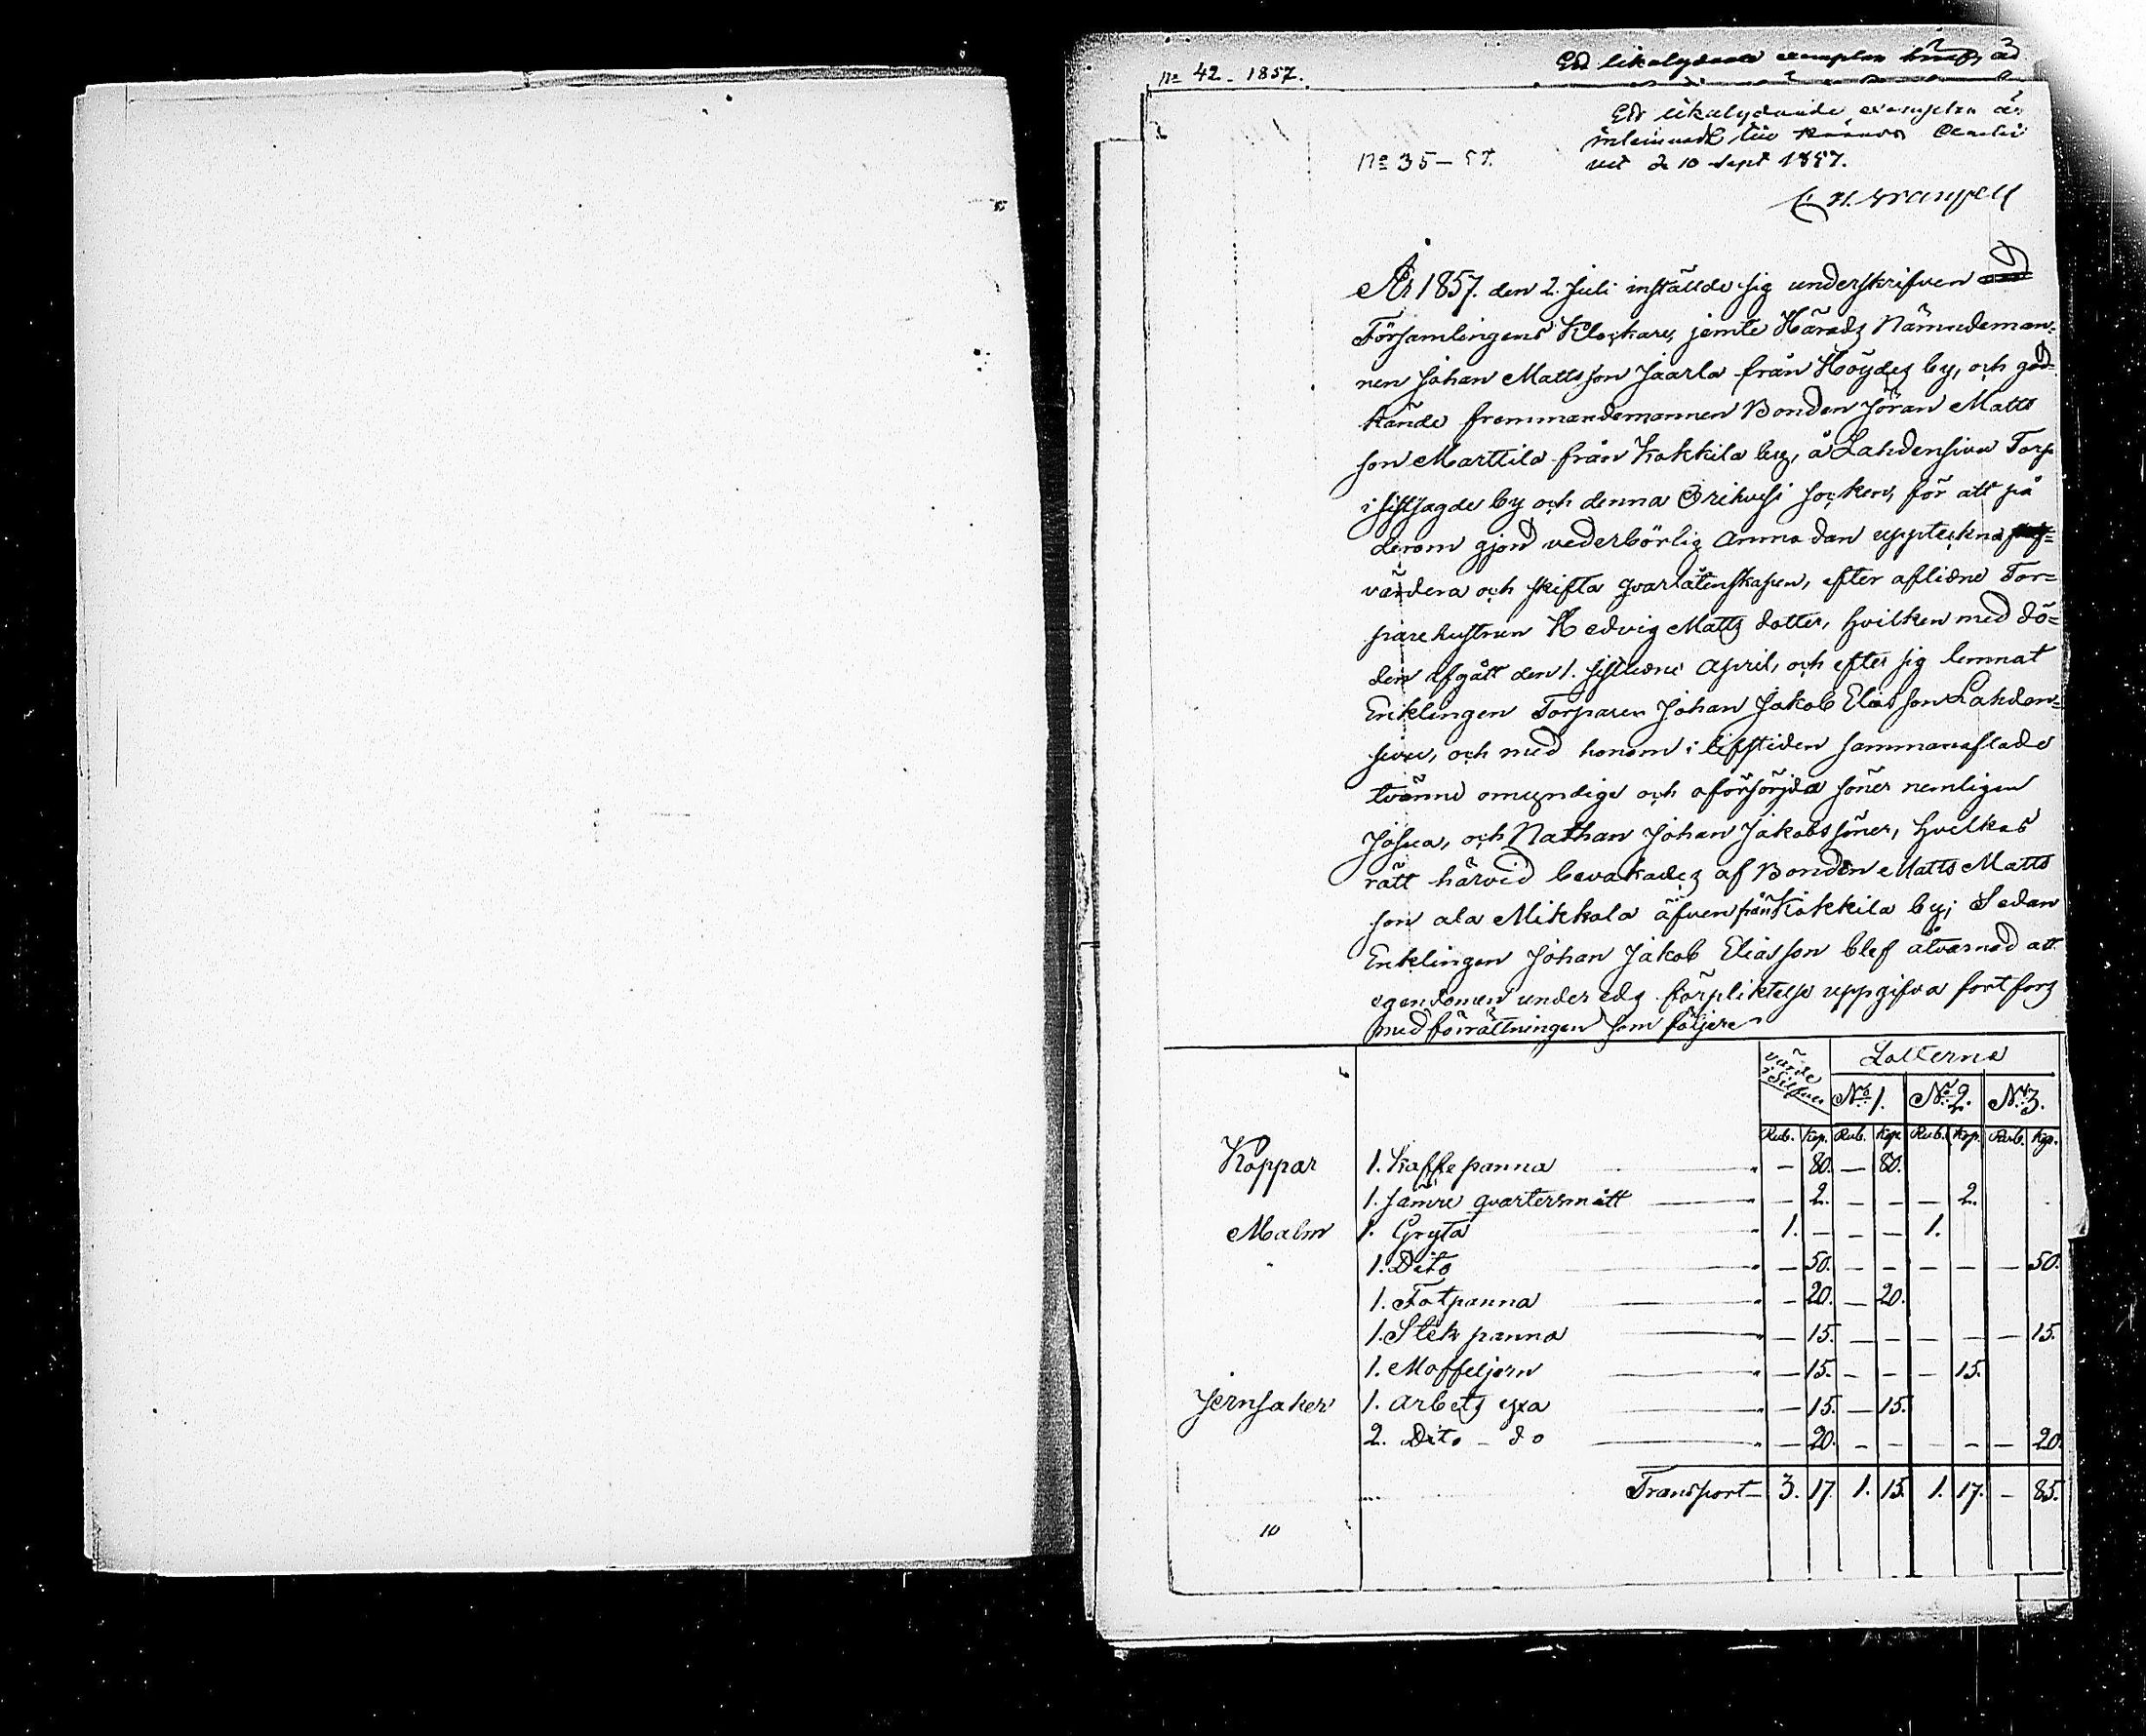 No 42 - 1857.
Ett likalydande exemplar
Ett likalydande exemplar är
inlemnadt till
vet d. 10 Sept 1857.
No 35 - 57.
År 1857. den 2. Juli inställde sig underskrifven
Församlingens Klockare, jemte Härads Nämndeman-
nen Johan Mattsson Jaarla från Höydes by, och god-
kände fremmandemannen Bonden Jöran Matts
son Marttila från Kokkila by, å Lahdensivu Torp
i sistsagde by och denna Orihvesi socken, för att på
derom gjord vederbörlig anmodan uppteckna
värdera och skifta qvarlåtenskapen, efter aflidne Tor=
parehustrun Hedvig Matts dotter, hvilken med dö=
den afgått den 1. sistledne April, och efter sig lemnat
Enklingen Torparen Johan Jakob Eliasson Lahden=
sivu, och med honom i lifstiden sammanaflade
tvänne omyndige och oförsörjda söner nemligen
Josua, och Nathan Johan Jakobssöner, hvilkas
rätt härvid bevakades af Bonden Matts Matts
son ala Mikkola äfven från Kokkila by; Sedan
Enklingen Johan Jakob Eliasson blef åtvarnad att
egendomen under eds förpliktelse uppgifva fortfors
med förrättningen som följer
värde i Silfver Lotterne
No 1. No 2. No 3.
Rub. Kop. Rub. Kop. Rub. Kop. Rub. Kop.
Koppar 1. Kaffepanna " — 80. — 80.
1. sämre qvartersmått " — 2. — — — 2.
Malm 1. Gryta " 1. — — — 1.
" 1. Dito " — 50. — — — — — 50.
1. Fotpanna " — 20. — 20.
1. Stekpanna " — 15. — — — — — 15.
1. Moffeljern " — 15. — — — 15.
Jernsaker 1. Arbets yxa " — 15. — 15.
2. Dito - do " — 20. — — — — — 20.
Transport — 3. 17. 1. 15. 1. 17. — 85.